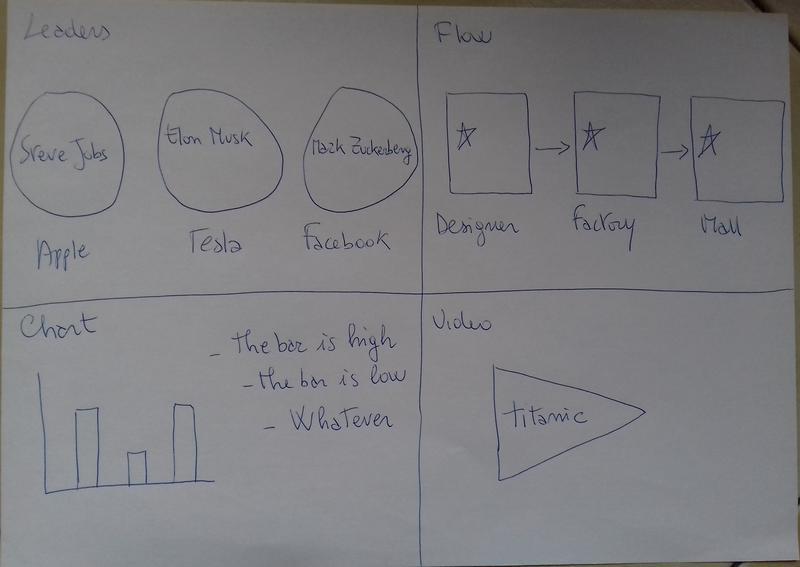 Leaders
Steve Jobs
Elon Musk
Mark Zuckerberg
Apple
Tesla
Facebook
Flow
Designer
Factory
Mall
Chart
- the bar is high
- the bar is low
- Whatever
Video
titanic